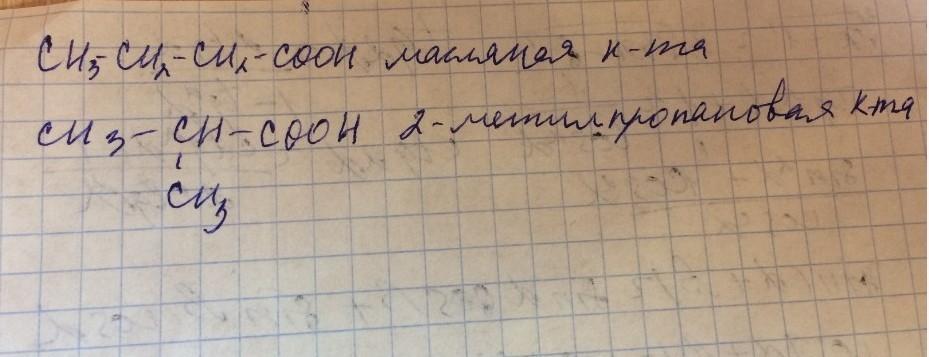 CH3-CH2-CH2-COOH масляная к-та
CH3-CH-COOH 2-метилпропановая к-та
CH3